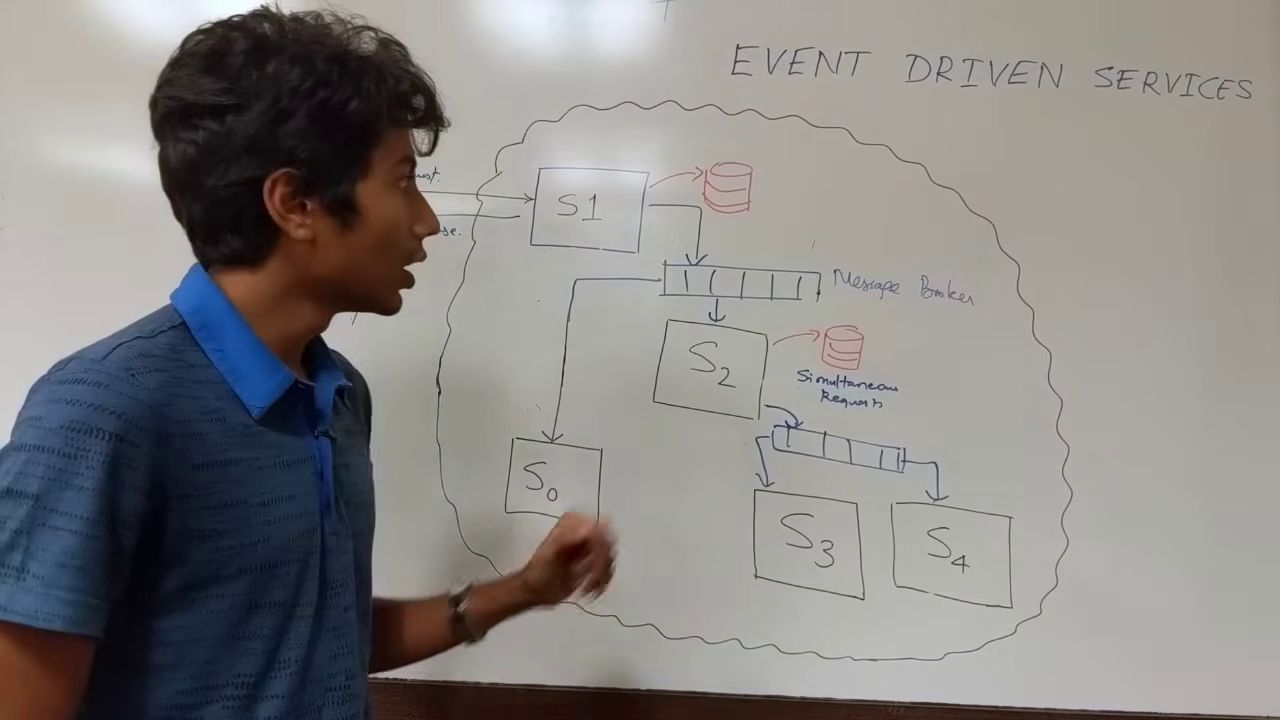 EVENT DRIVEN SERVICES
S1
Message Broker
S2
Simultaneous
Requests
S0
S3
S4